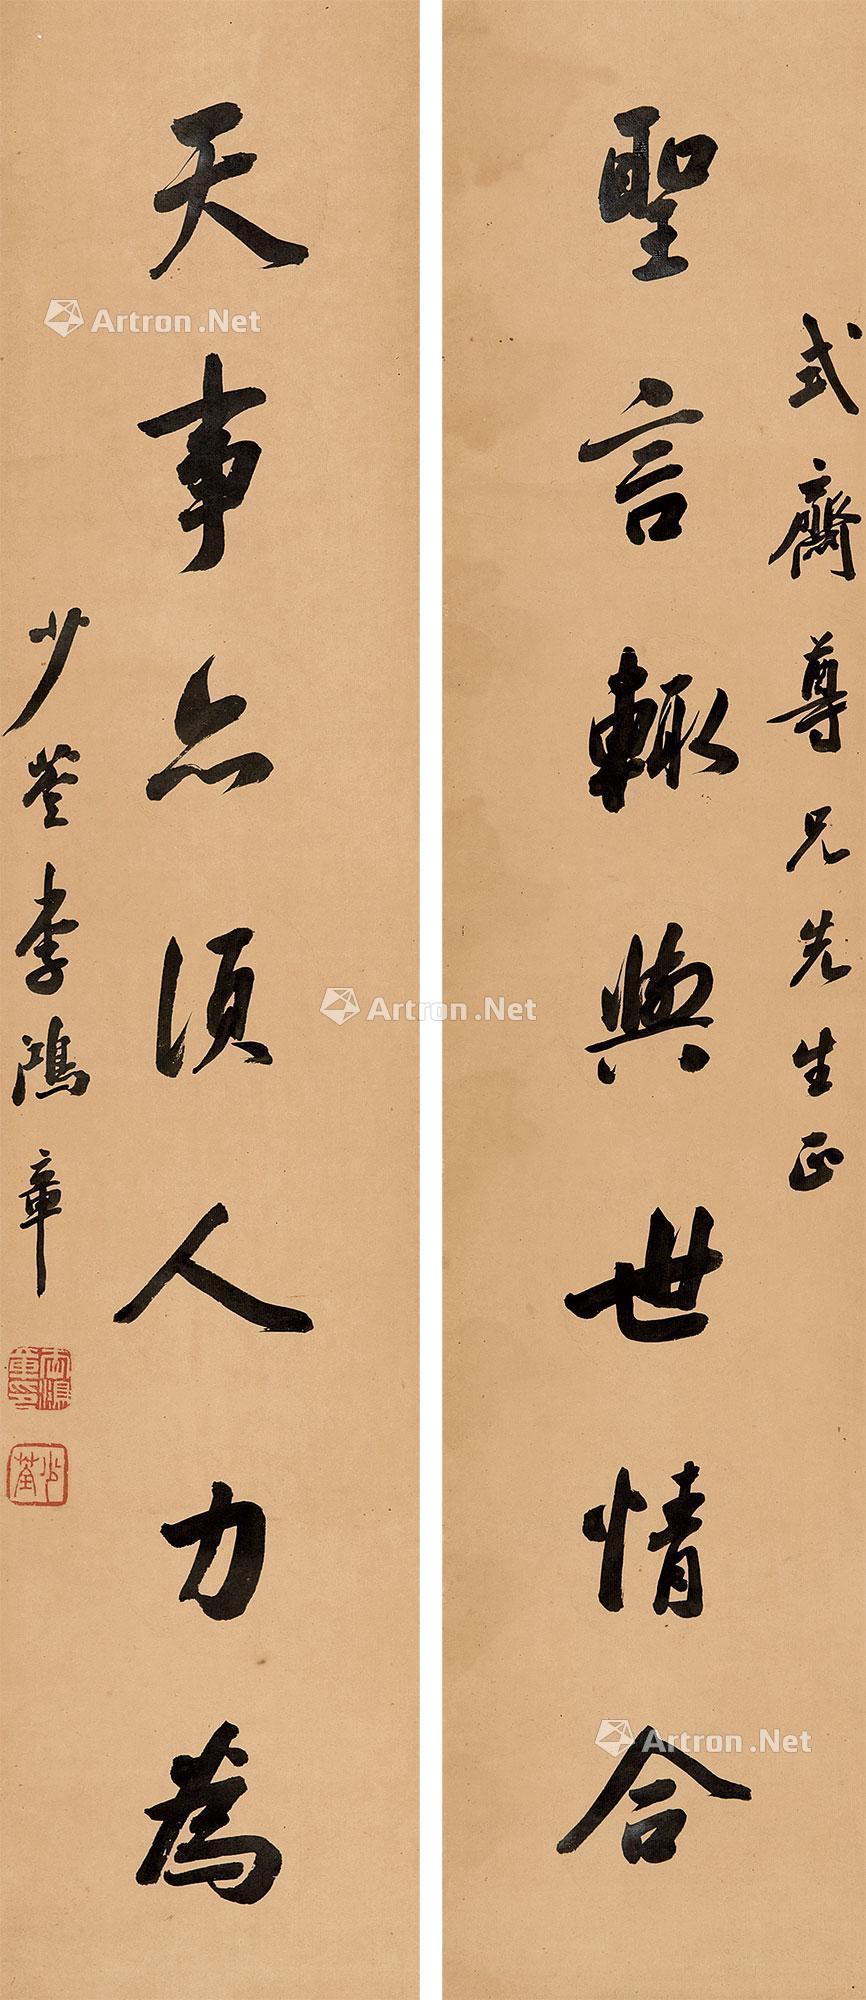 式齋尊兄先生正
聖言輙與世情合
天事亦須人力為
少荃李鴻章
李鴻章印
少荃
Artron.Net
Artron.Net
Artron.Net